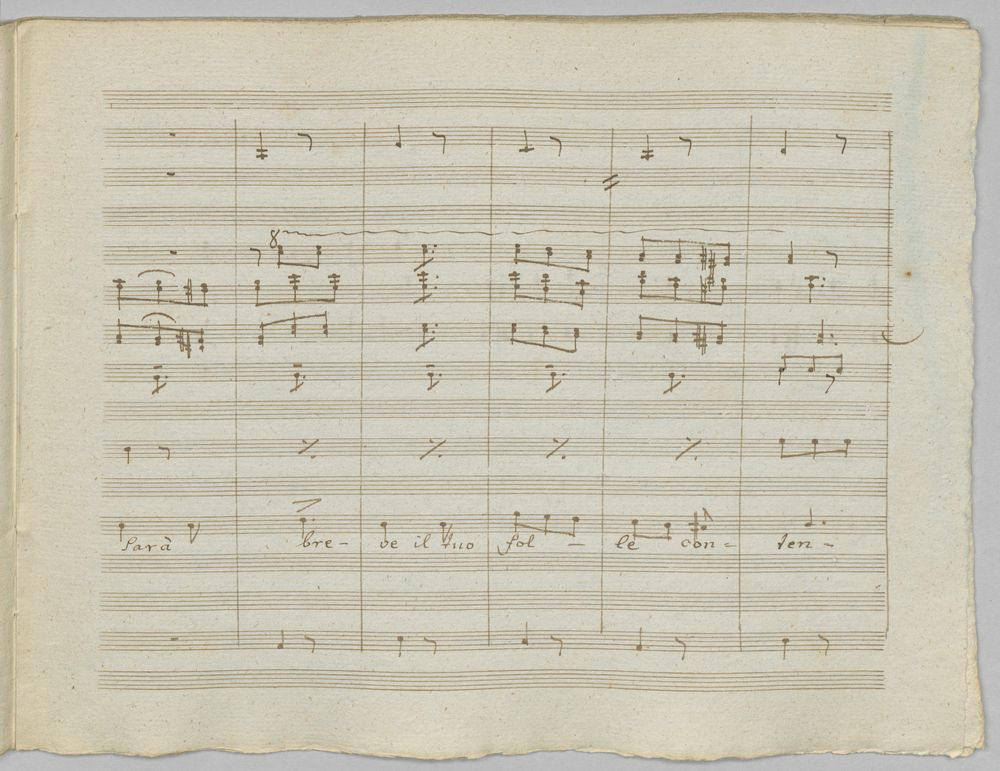 8
Sarà bre- ve il tuo fol - le con= ten-